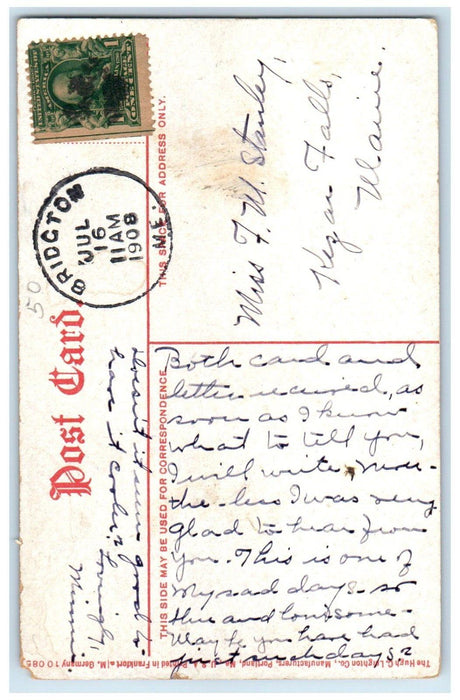 UNITED STATES OF AMERICA
ONE CENT
BRIDGTON
JUL
16
11 AM
1908
ME.
50
Post Card.
THIS SPACE FOR ADDRESS ONLY.
THIS SIDE MAY BE USED FOR CORRESPONDENCE
Miss F. M. Stanley,
Kezar Falls,
Maine.
Both card and
letter received, as
soon as I know
what to tell you,
I will write, Never-
the-less I was very
glad to hear from
you. This is one of
my sad days - so
blue and lonesome -
Maybe you have had
just such days?
Doesn't it seem good to
have it cooler?
Lovingly,
Minnie.
The Hugh C. Leighton Co., Manufacturers, Portland, Me., U. S. A. Printed in Frankfort a/M, Germany 10085